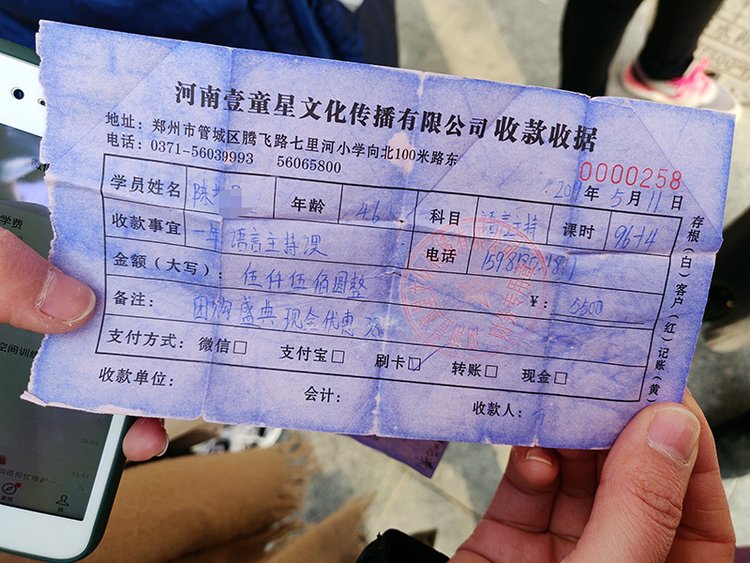 河南壹童星文化传播有限公司 收款收据
地址：郑州市管城区腾飞路七里河小学向北100米路东
电话：0371-56039993 56065800
0000258
年5月11日
学员姓名 陈 年龄 科目 语言主持 课时 96+4
收款事宜 一年语言主持课 电话
金额（大写）： 伍仟伍佰圆整 ¥： 5500
备注： 团购盛典现金优惠
支付方式： 微信□ 支付宝□ 刷卡□ 转账□ 现金□
收款单位： 会计： 收款人：
存根（白）客户（红）记账（黄）
学费
空间训练